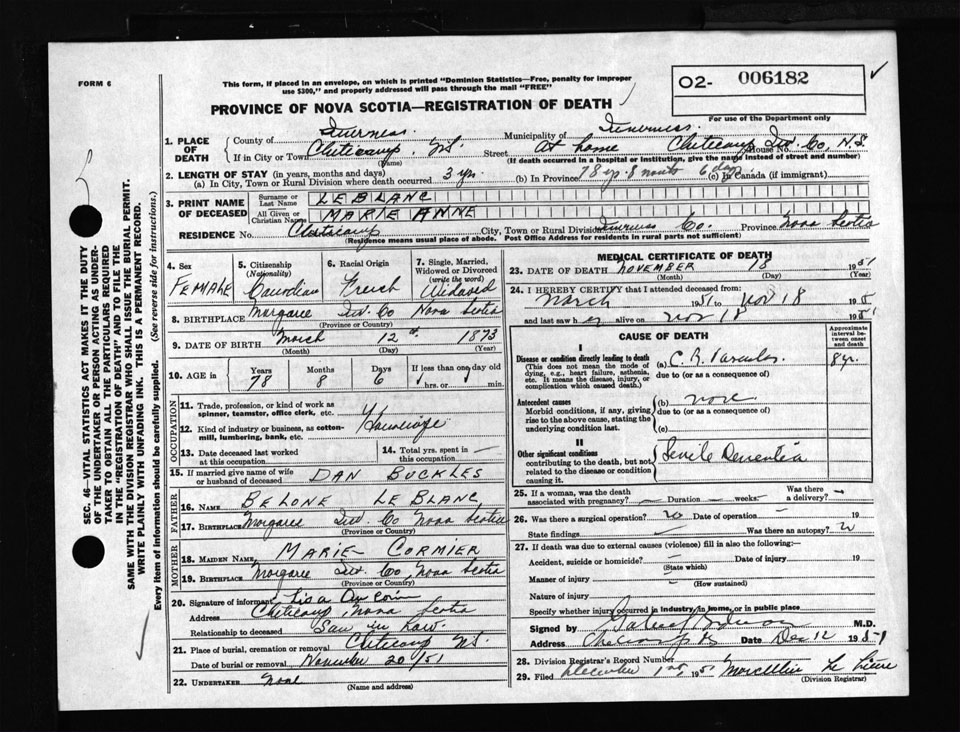 FORM 6
This form, if placed in an envelope, on which is printed "Dominion Statistics—Free, penalty for improper
use $300," and properly addressed will pass through the mail "FREE"
O2- 006182 ✓
For use of the Department only
PROVINCE OF NOVA SCOTIA—REGISTRATION OF DEATH
1. PLACE OF DEATH
County of Inverness. Municipality of Inverness.
If in City or Town Cheticamp. N.S. Street At home Cheticamp Inv. Co, N.S. House No.
(Name) (If death occurred in a hospital or institution, give the name instead of street and number)
2. LENGTH OF STAY (in years, months and days)
(a) In City, Town or Rural Division where death occurred 3 yrs. (b) In Province 78 yrs. 8 months 6 days (c) In Canada (if immigrant)
3. PRINT NAME OF DECEASED
Surname or Last Name LEBLANC
All Given or Christian Names MARIE ANNE
RESIDENCE No. Cheticamp City, Town or Rural Division Inverness Co. Province Nova Scotia
(Residence means usual place of abode. Post Office Address for residents in rural parts not sufficient)
4. Sex FEMALE
5. Citizenship (Nationality) Canadian
6. Racial Origin French
7. Single, Married, Widowed or Divorced (write the word) Widowed
8. BIRTHPLACE Margaree Inv. Co Nova Scotia
(Province or Country)
9. DATE OF BIRTH March 12 1873
(Month) (Day) (Year)
10. AGE in Years 78 Months 8 Days 6 If less than one day old hrs. or min.
OCCUPATION
11. Trade, profession, or kind of work as spinner, teamster, office clerk, etc.
12. Kind of industry or business, as cotton-mill, lumbering, bank, etc. Housewife
13. Date deceased last worked at this occupation
14. Total yrs. spent in this occupation —
15. If married give name of wife or husband of deceased DAN BUCKLES
FATHER
16. NAME BELONE LE BLANC
17. BIRTHPLACE Margaree Inv. Co Nova Scotia
(Province or Country)
MOTHER
18. MAIDEN NAME MARIE CORMIER
19. BIRTHPLACE Margaree Inv. Co, Nova Scotia
(Province or Country)
20. Signature of informant
Address Cheticamp Nova Scotia
Relationship to deceased Law.
21. Place of burial, cremation or removal Cheticamp N.S.
Date of burial or removal November 20/51
22. UNDERTAKER None
(Name and address)
MEDICAL CERTIFICATE OF DEATH
23. DATE OF DEATH NOVEMBER 18 1951
(Month) (Day)
24. I HEREBY CERTIFY that I attended deceased from:
March 1951 to Nov 18 195
and last saw her alive on Nov 18 195
CAUSE OF DEATH
Approximate interval between onset and death
I
Disease or condition directly leading to death
(This does not mean the mode of dying, e.g., heart failure, asthenia, etc. It means the disease, injury, or complication which caused death.)
(a) C. R. 8 yr.
due to (or as a consequence of)
Antecedent causes
Morbid conditions, if any, giving rise to the above cause, stating the underlying condition last.
(b) none
due to (or as a consequence of)
(c)
II
Other significant conditions
contributing to the death, but not related to the disease or condition causing it.
Senile Dementia
25. If a woman, was the death associated with pregnancy? — Duration — weeks Was there a delivery? —
26. Was there a surgical operation? no Date of operation — 19
State findings — Was there an autopsy? no
27. If death was due to external causes (violence) fill in also the following:—
Accident, suicide or homicide? Date of injury 19
(State which)
Manner of injury
(How sustained)
Nature of injury
Specify whether injury occurred in industry, in home, or in public place
Signed by M.D.
Address Date Dec 12 1951
28. Division Registrar's Record Number
29. Filed December 1st, 1951
(Division Registrar)
SEC. 46—VITAL STATISTICS ACT MAKES IT THE DUTY
OF THE UNDERTAKER OR PERSON ACTING AS UNDER-
TAKER TO OBTAIN ALL THE PARTICULARS REQUIRED
IN THE "REGISTRATION OF DEATH" AND TO FILE THE
SAME WITH THE DIVISION REGISTRAR WHO SHALL ISSUE THE BURIAL PERMIT.
WRITE PLAINLY WITH UNFADING INK. THIS IS A PERMANENT RECORD.
Every item of information should be carefully supplied. (See reverse side for instructions.)